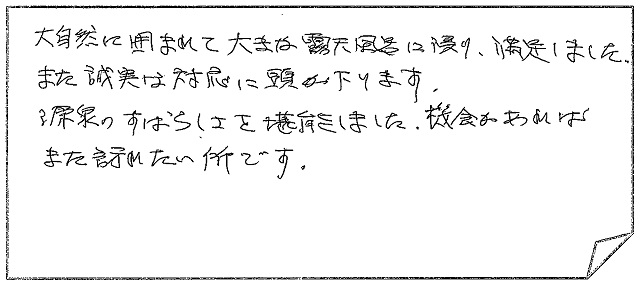 大自然に囲まれて大きな露天風呂に浸り、満足しました。
また誠実な対応に頭が下ります。
源泉のすばらしさを堪能しました。機会があれば
また訪れたい所です。